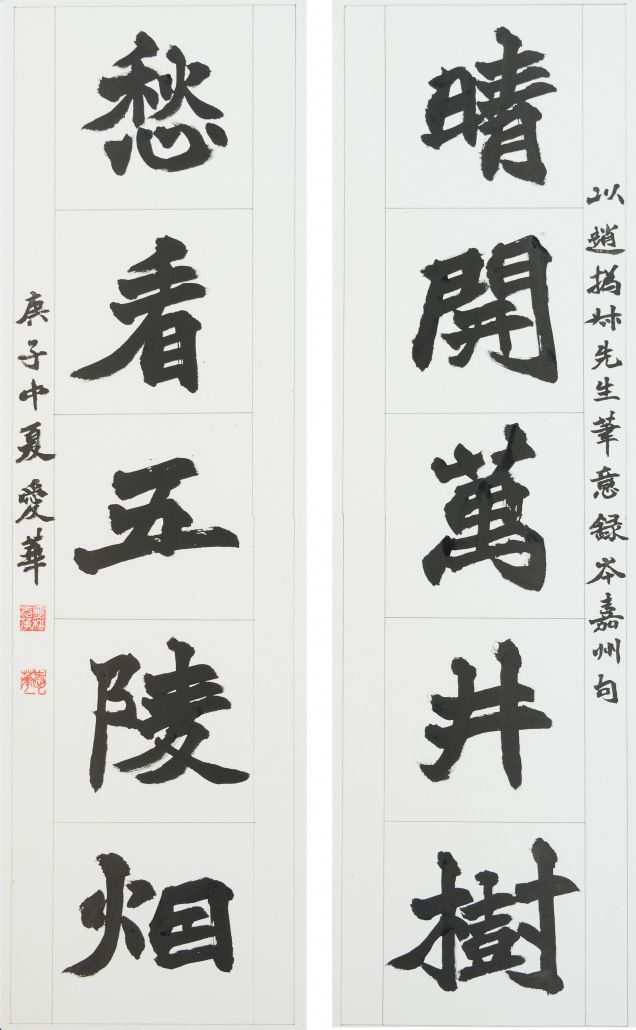 以趙撝叔先生筆意錄岑嘉州句
晴開萬井樹
愁看五陵烟
庚子中夏愛華